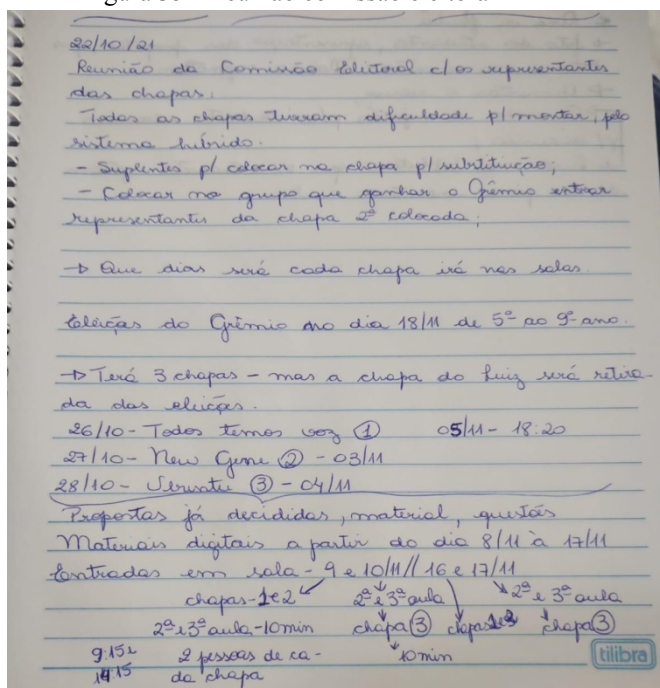 22/10/21
Reunião da Comissão Eleitoral c/ os representantes
das chapas.
Todas as chapas tiveram dificuldade p/ montar, pelo
sistema híbrido.
- Suplentes p/ colocar na chapa p/ substituição;
- Colocar no grupo que ganhar o Grêmio entrar
representantes da chapa 2ª colocada;
→ Que dias será cada chapa irá nas salas.
Eleições do Grêmio no dia 18/11 de 5º ao 9º ano.
→ Terá 3 chapas - mas a chapa do Luiz será retira-
da das eleições.
26/10 - Todos temos voz ① 05/11 - 18:20
27/10 - New Gene ② - 03/11
28/10 - ③ - 04/11
Propostas já decididas, material, questões
Materiais digitais a partir do dia 8/11 à 17/11
Entradas em sala - 9 e 10/11 // 16 e 17/11
chapas - 1 e 2 2ª e 3ª aula 2ª e 3ª aula
2ª e 3ª aula - 10min chapa ③ chapas 1 e 2 chapa ③
9:15 e 2 pessoas de ca- 10min
14:15 da chapa
tilibra